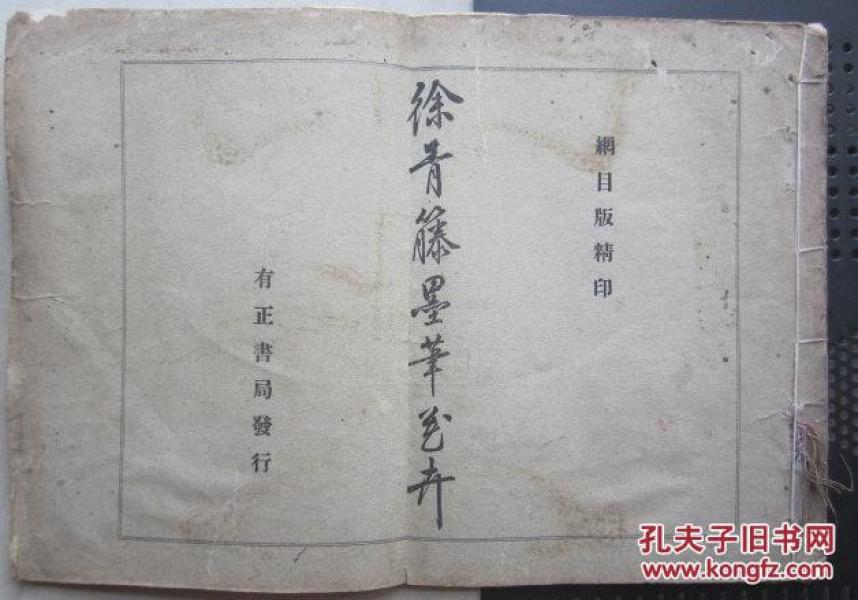 網目版精印
徐青藤墨筆花卉
有正書局發行
孔夫子旧书网
www.kongfz.com